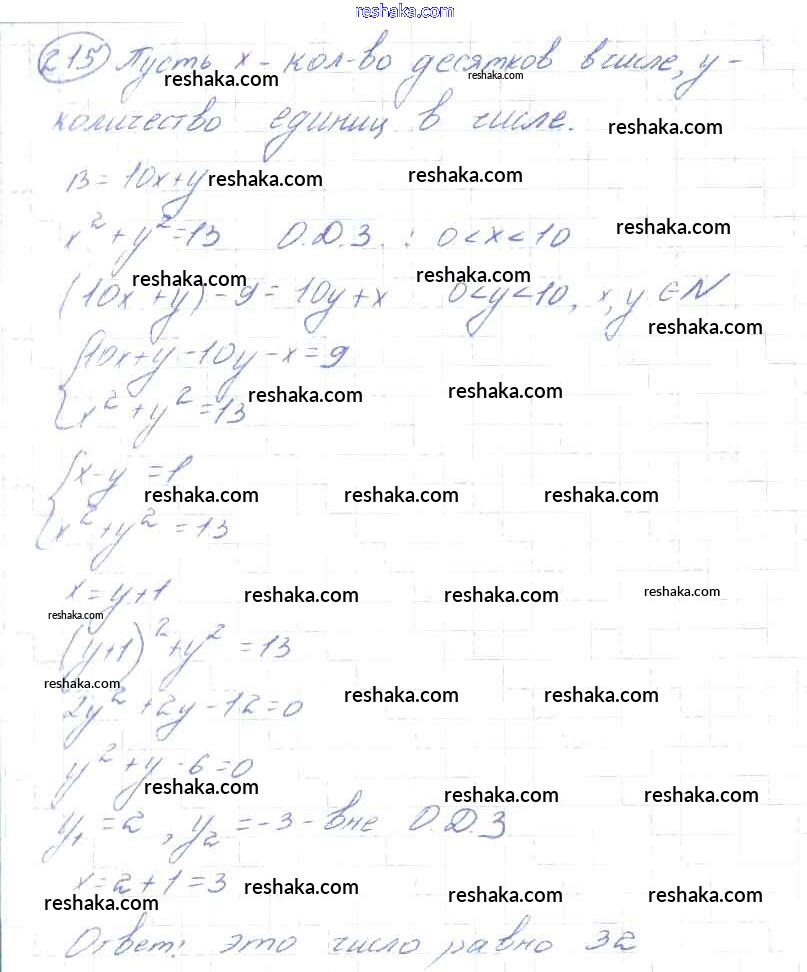 reshaka.com
215 Пусть x - кол-во десятков в числе, y -
reshaka.com reshaka.com
количество единиц в числе.
reshaka.com
B = 10x+y reshaka.com reshaka.com
x² + y² = 13 О.Д.З. : 0 < x < 10
reshaka.com
reshaka.com reshaka.com
(10x + y) - 9 = 10y + x 0 < y < 10, x, y ∈ N
reshaka.com
{10x + y - 10y - x = 9
x² + y² = 13 reshaka.com reshaka.com
{x - y = 1
reshaka.com reshaka.com reshaka.com
x² + y² = 13
x = y + 1 reshaka.com reshaka.com reshaka.com
reshaka.com
(y+1)² + y² = 13
reshaka.com
2y² + 2y - 12 = 0 reshaka.com reshaka.com
y² + y - 6 = 0
reshaka.com reshaka.com reshaka.com
y₁ = 2, y₂ = -3 - вне О.Д.З
x = 2 + 1 = 3 reshaka.com reshaka.com reshaka.com
reshaka.com
Ответ: это число равно 32